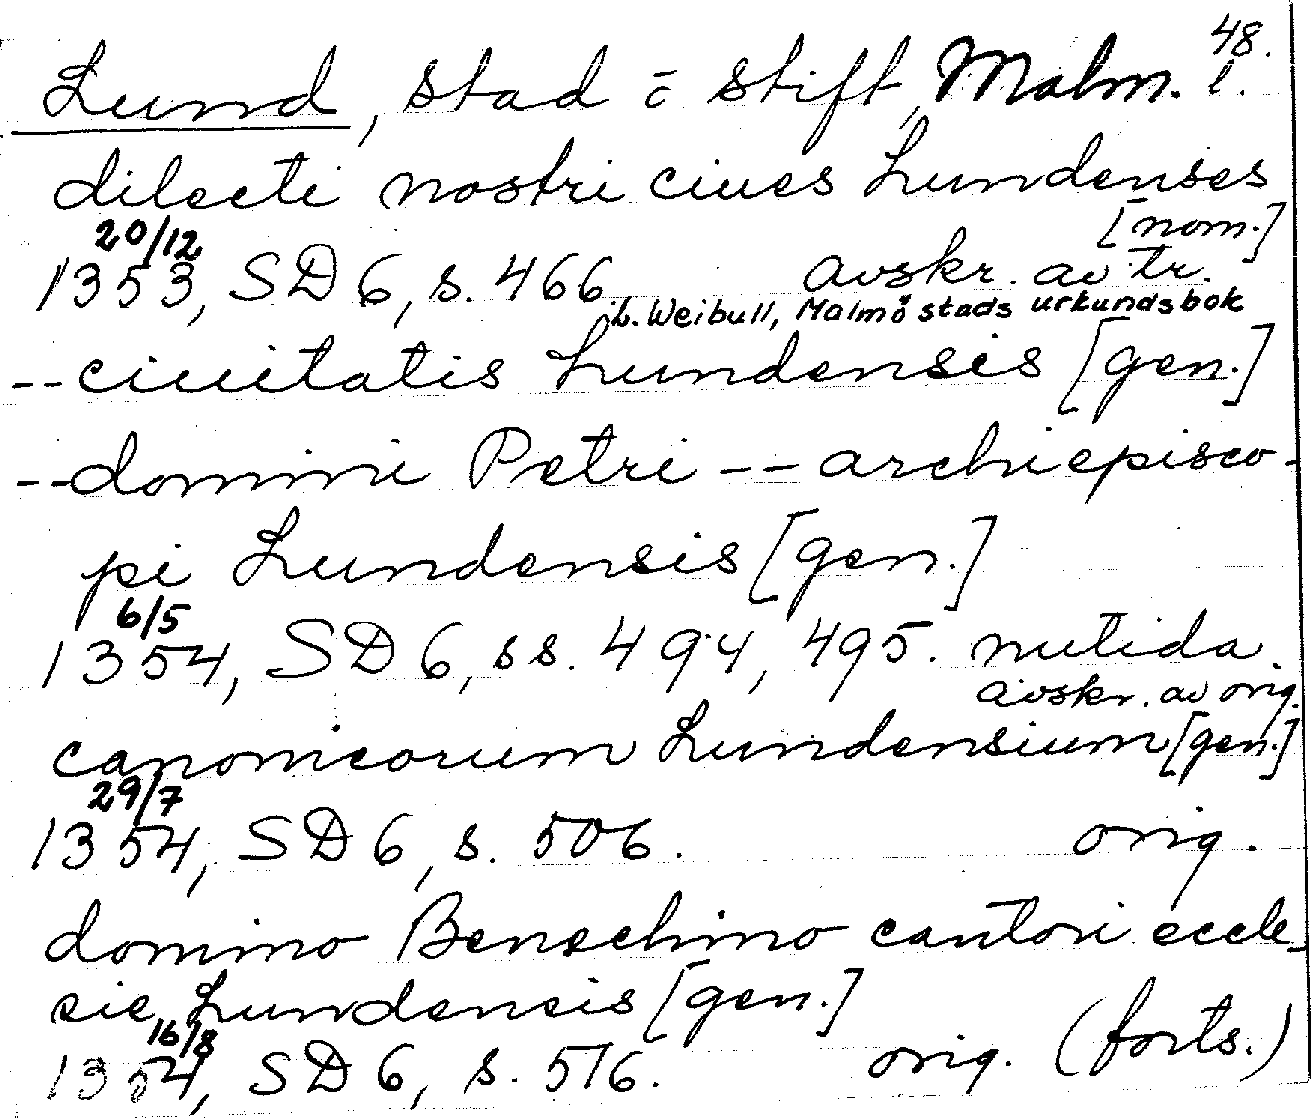 48.
Lund, stad o stift, Malm. l.
dilecti nostri ciues Lundenses
[nom.]
20/12
1353, SD 6, s. 466 avskr. av tr.
L. Weibull, Malmö stads urkundsbok
-- ciuitatis Lundensis [gen.]
-- domini Petri -- archiepisco-
pi Lundensis [gen.]
6/5
1354, SD 6, ss. 494, 495. nutida
avskr. av orig.
canonicorum Lundensium [gen.]
29/7
1354, SD 6, s. 506. orig.
domino Benechino cantori eccle-
sie Lundensis [gen.]
16/8
1354, SD 6, s. 516. orig. (forts.)